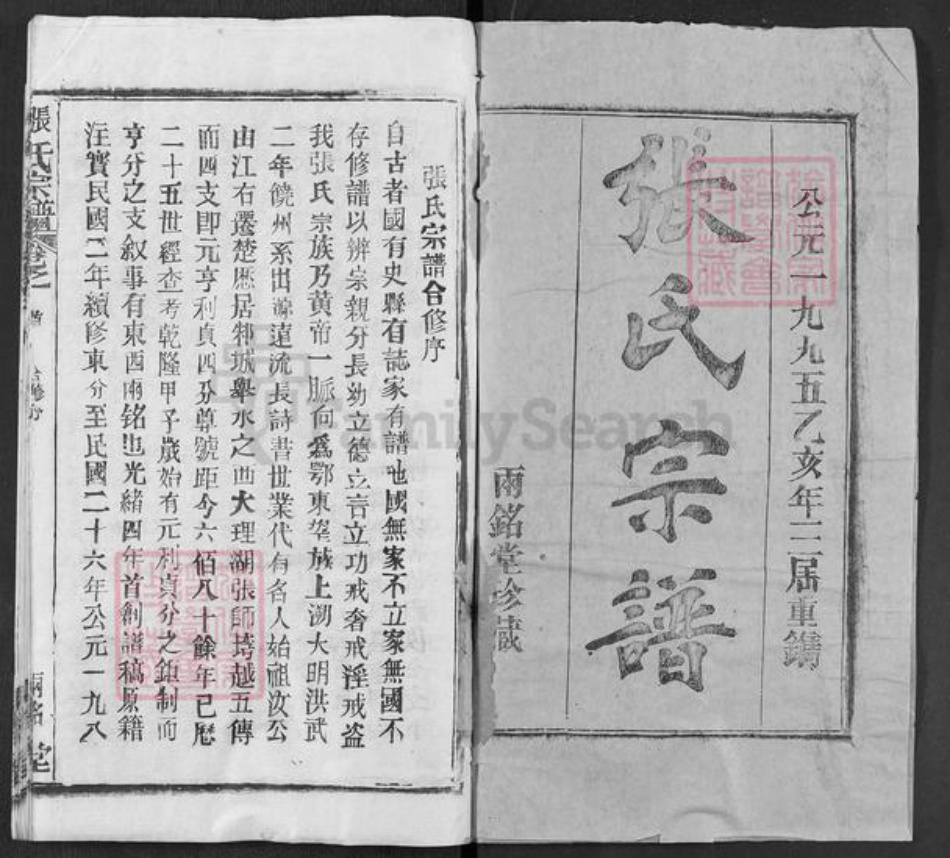 公元一九九五乙亥年三届重鐫
張氏宗譜
兩銘堂珍蔵
張氏宗譜合修序
自古者國有史縣有誌家有譜也國無家不立家無國不
存修譜以辨宗親分長幼立德立言立功戒奢戒淫戒盗
我張氏宗族乃黄帝一脈向爲鄂東望族上溯大明洪武
二年饒州系出源遠流長詩書世業代有名人始祖汝公
由江右遷楚歴居邾城舉水之西大理湖張師塆越五傳
而四支即元亨利貞四分尊號距今六佰八十餘年已歷
二十五世經查考乾隆甲子歲始有元利貞分之鉅制而
亨分之支叙事有東西兩铭也光緒四年首創譜稿原籍
注實民國二年續修東分至民國二十六年公元一九八
張氏宗譜
卷之
首
兩銘堂
FamilySearch